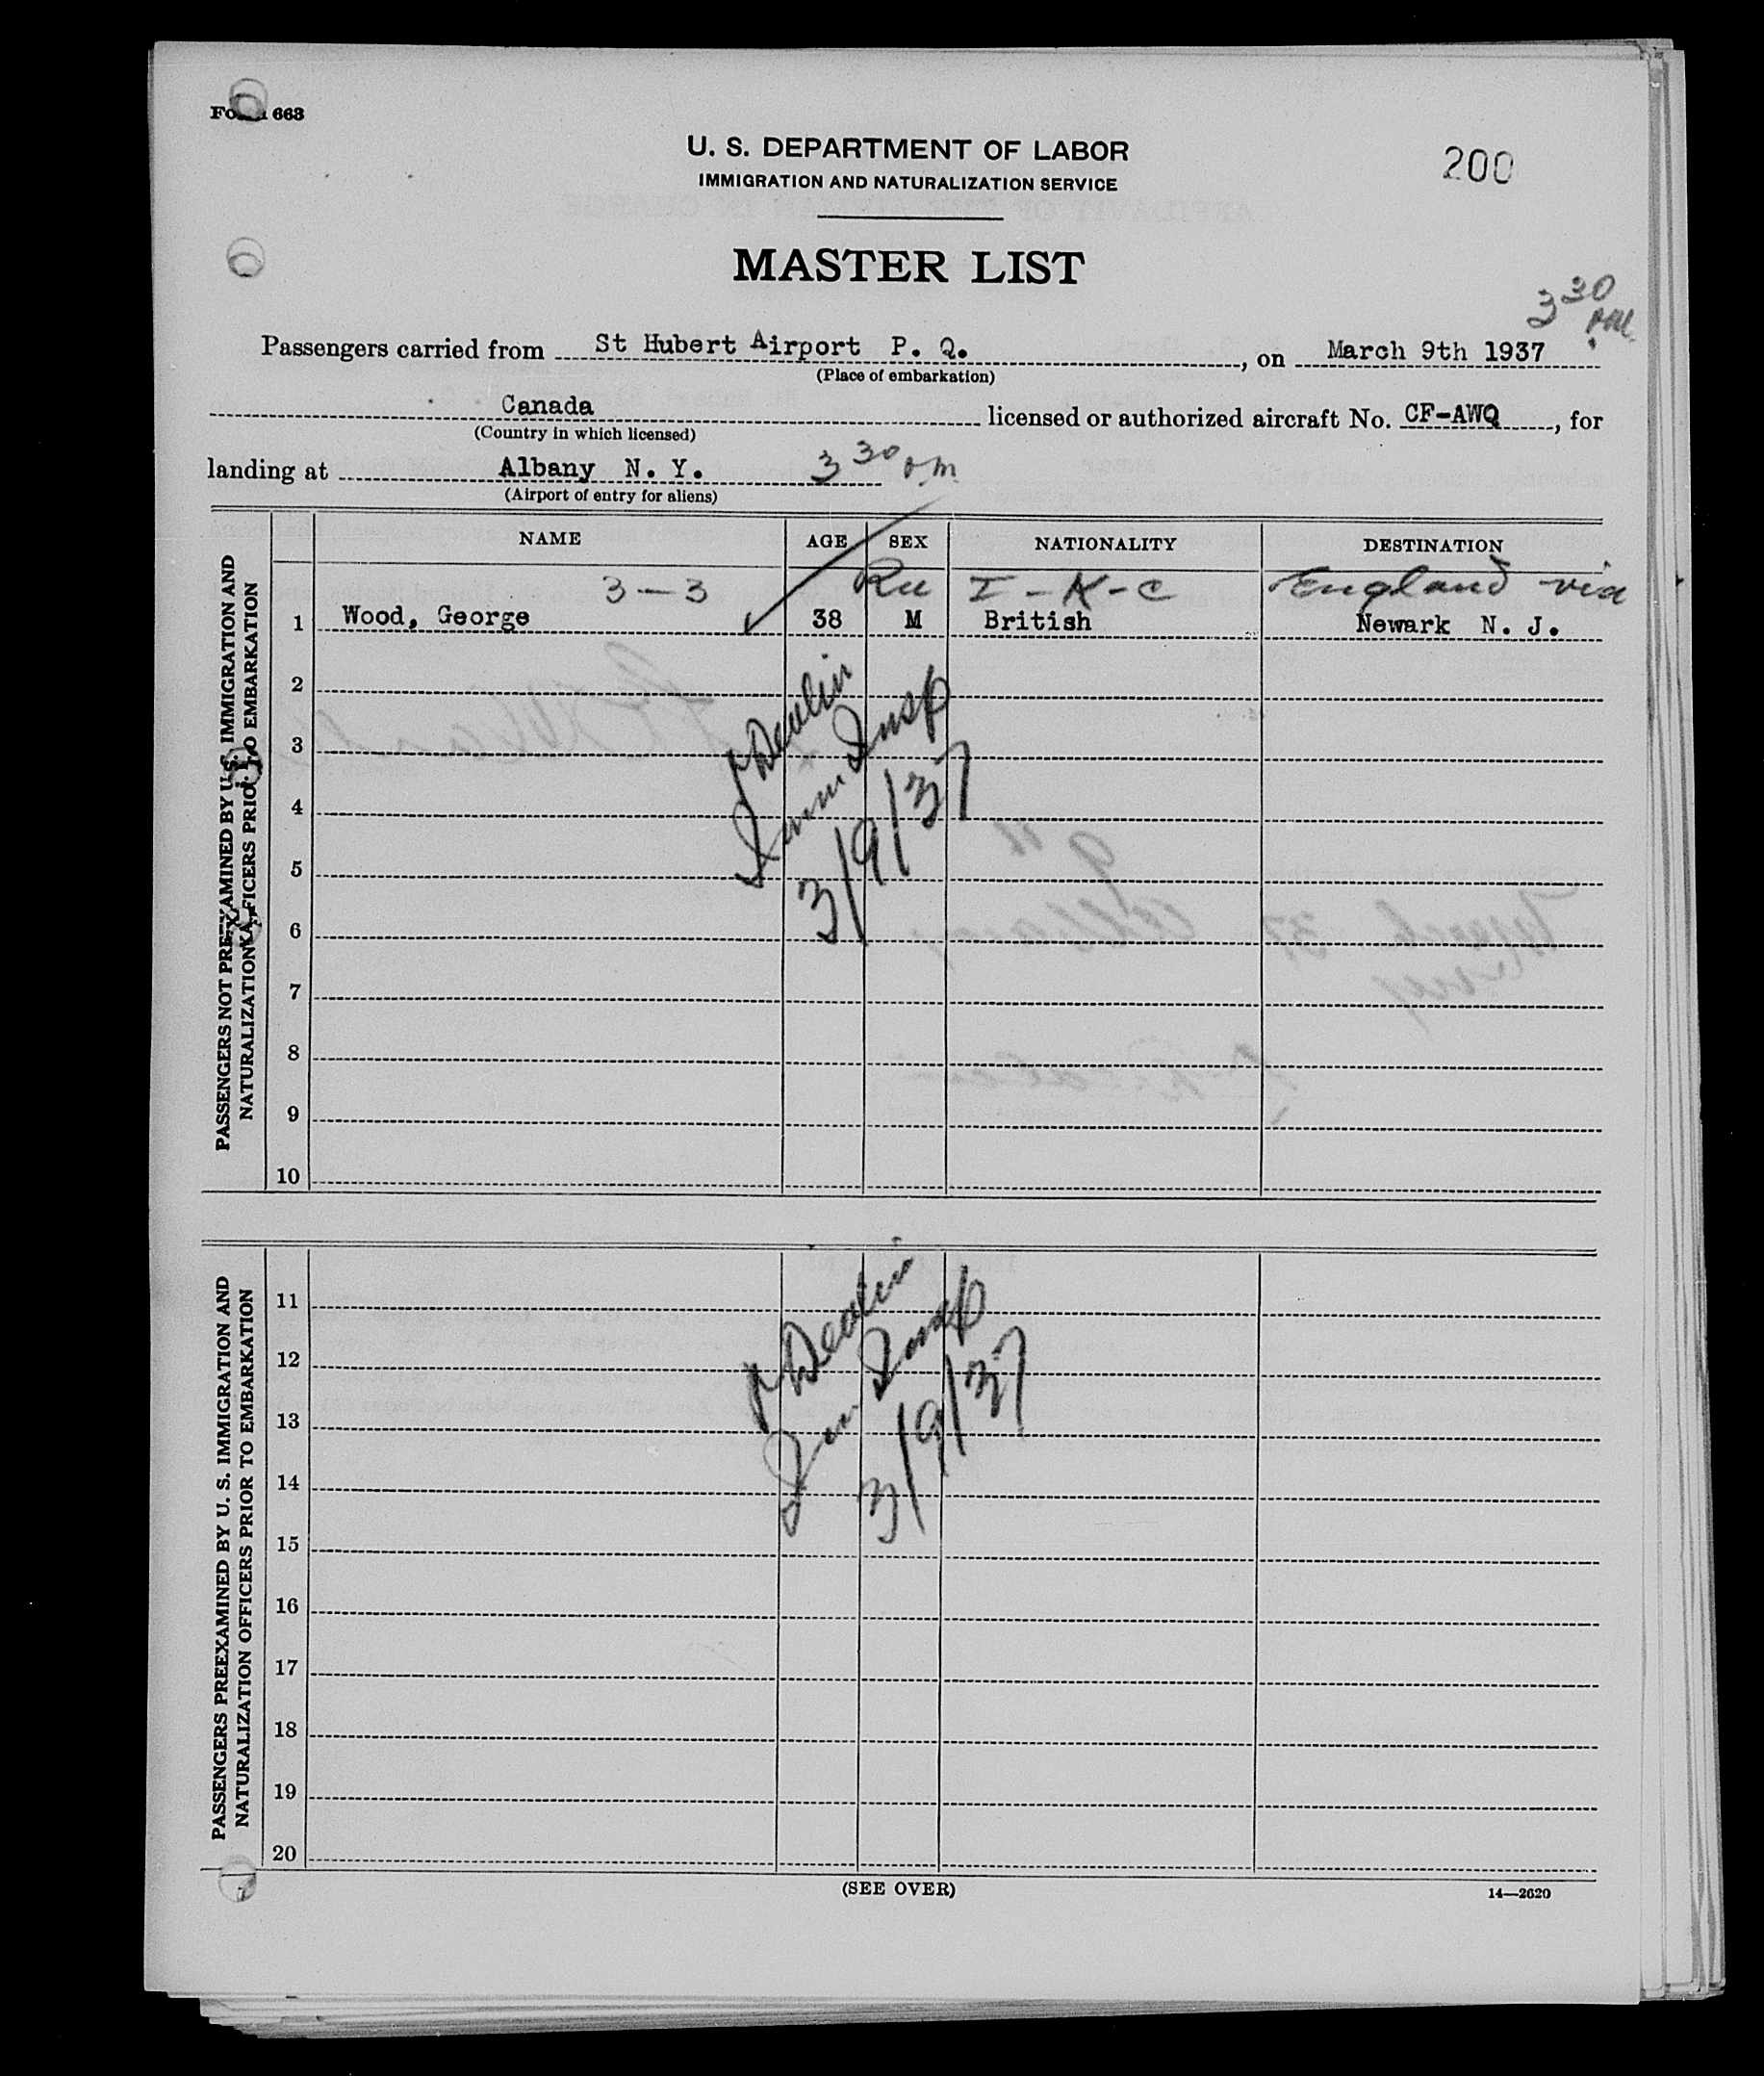 663
U. S. DEPARTMENT OF LABOR
200
IMMIGRATION AND NATURALIZATION SERVICE
MASTER LIST
3 30 PM
Passengers carried from St Hubert Airport P. Q., on March 9th 1937
(Place of embarkation)
Canada licensed or authorized aircraft No. CF-AWQ, for
(Country in which licensed)
landing at Albany N. Y. 3 30 PM
(Airport of entry for aliens)
NAME AGE SEX NATIONALITY DESTINATION
3-3 I-K-C England via
1 Wood, George 38 M British Newark N. J.
2
3
4
5
6
7
8
9
10
PASSENGERS NOT PREEXAMINED BY U.S. IMMIGRATION AND
NATURALIZATION OFFICERS PRIOR TO EMBARKATION
Devlin
Imm Insp
3/9/37
11
12
13
14
15
16
17
18
19
20
PASSENGERS PREEXAMINED BY U. S. IMMIGRATION AND
NATURALIZATION OFFICERS PRIOR TO EMBARKATION
Devlin
Imm Insp
3/9/37
(SEE OVER)
14—2620